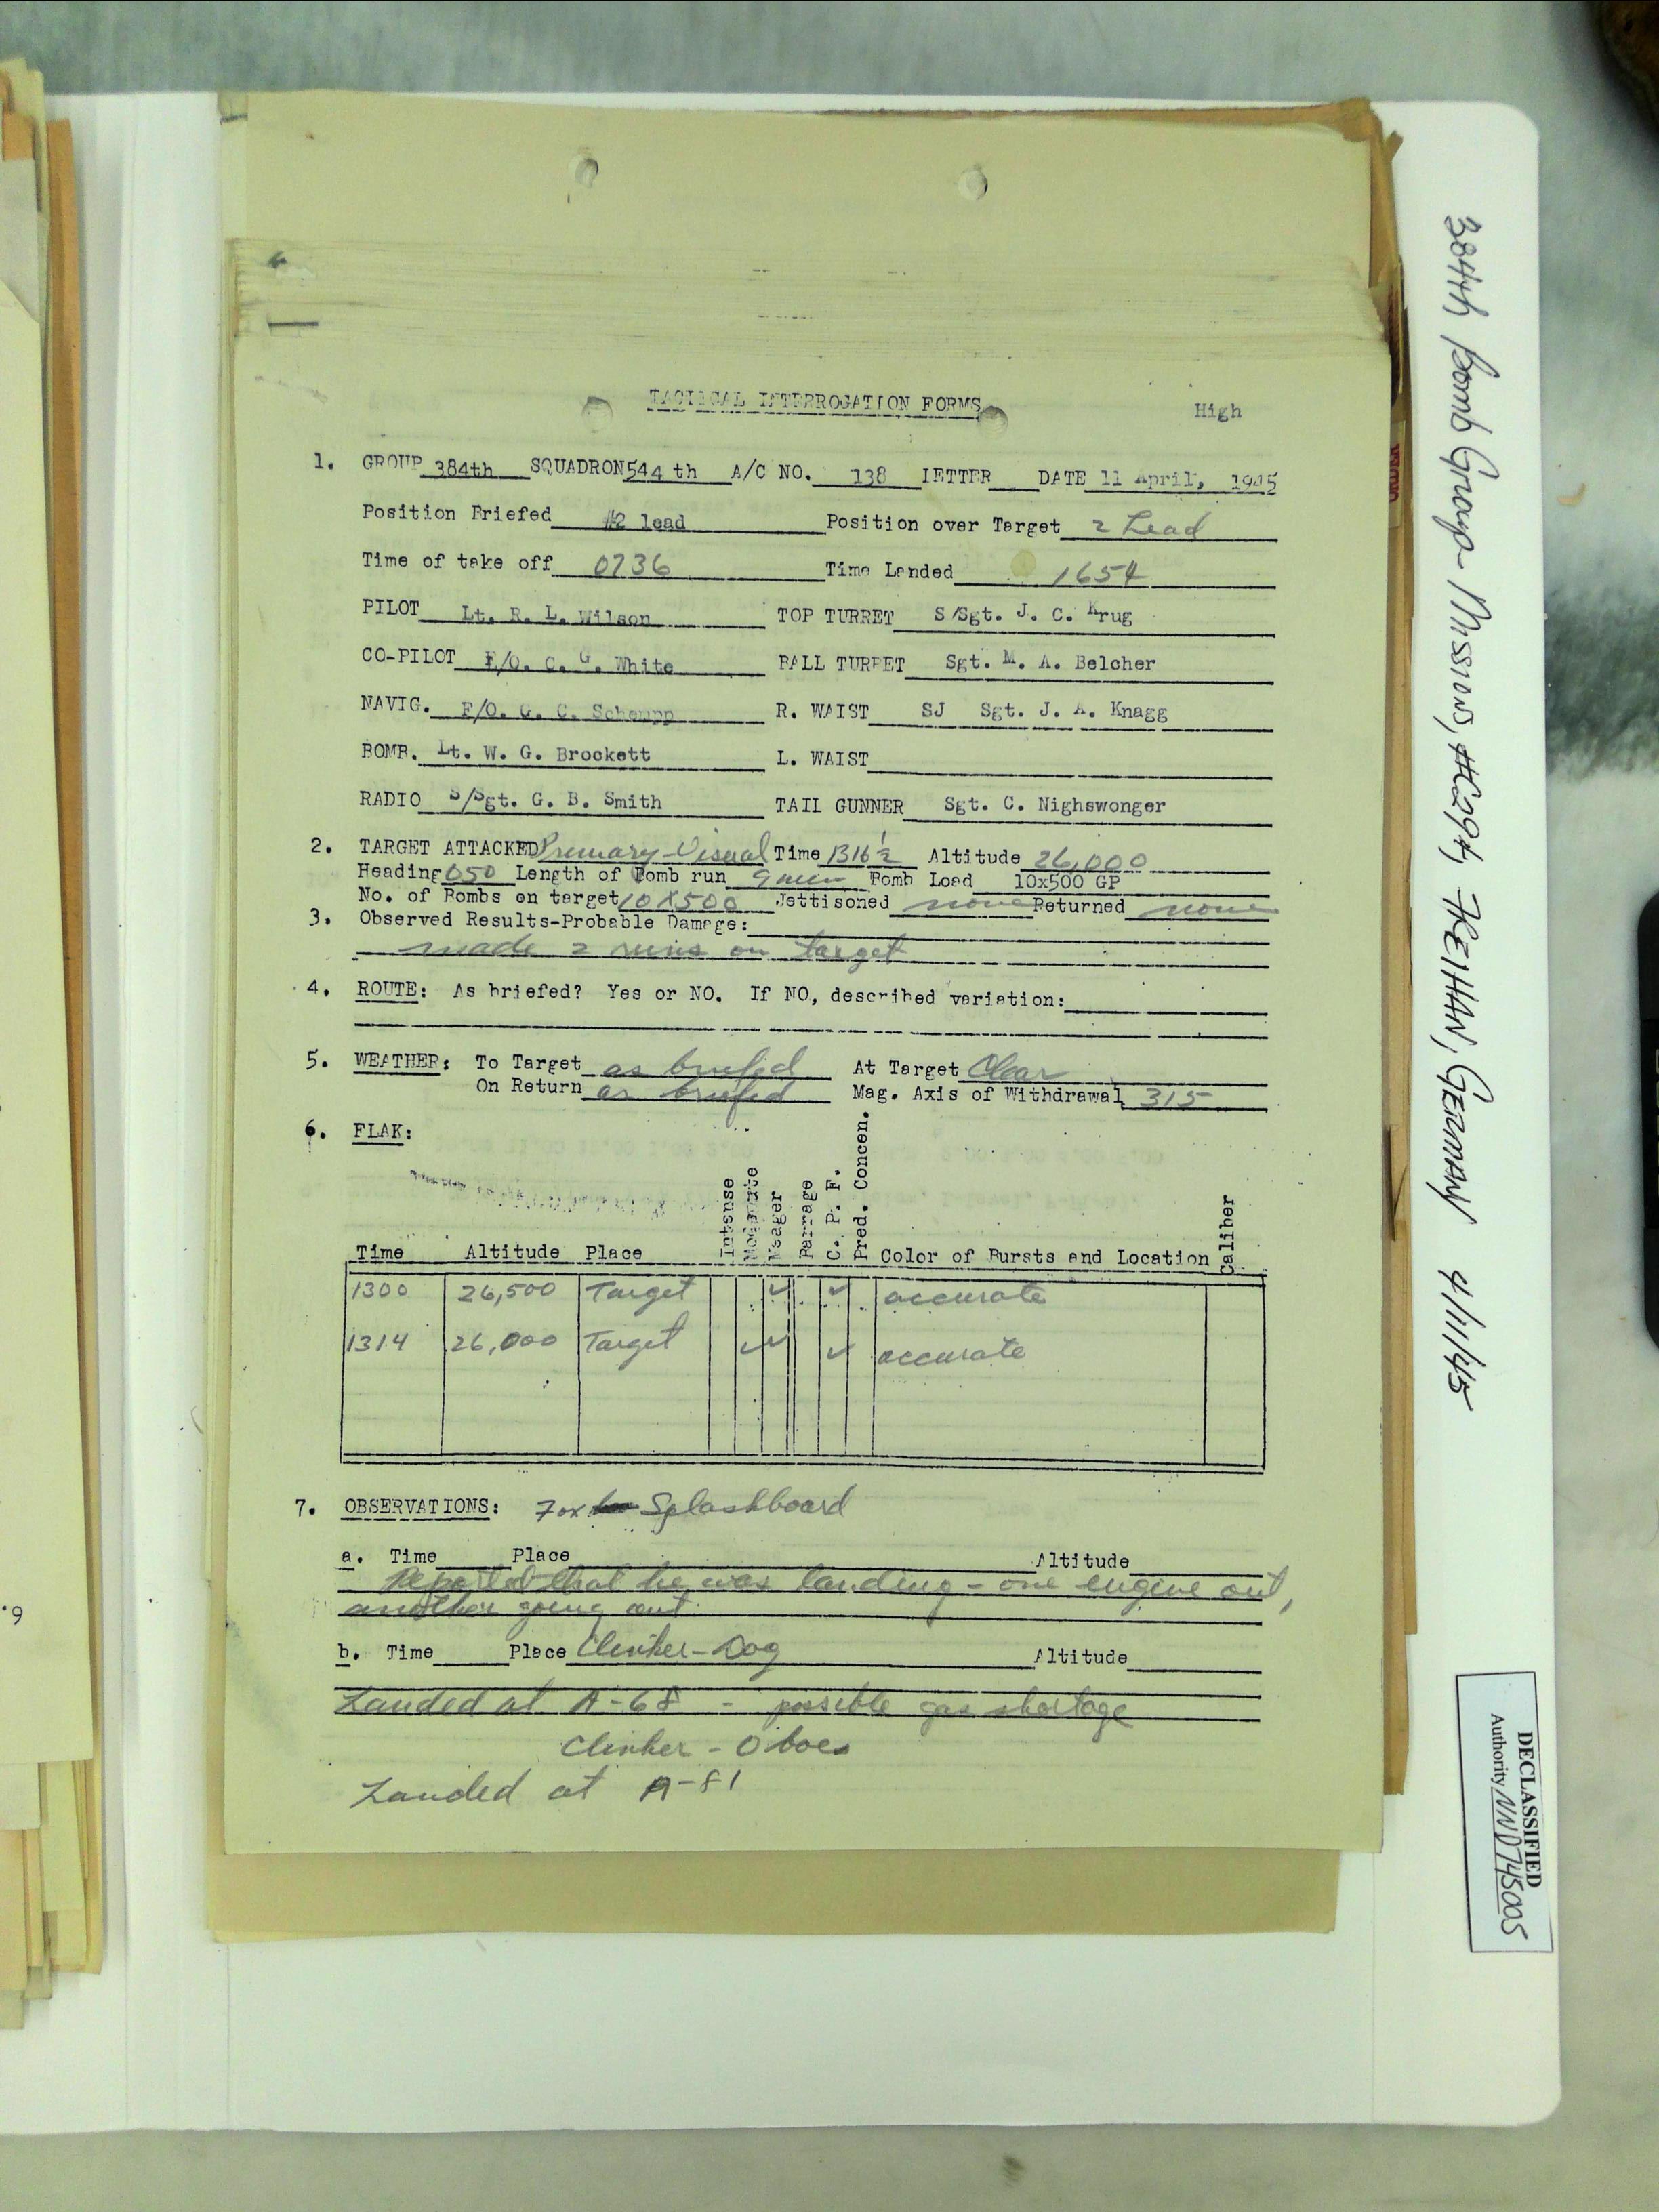 TACTICAL INTERROGATION FORMS
High
1. GROUP 384th SQUADRON 544 th A/C NO. 138 LETTER DATE 11 April, 1945
Position Briefed #2 lead Position over Target 2 Lead
Time of take off 0736 Time Landed 1654
PILOT Lt. R. L. Wilson TOP TURRET S/Sgt. J. C. Krug
CO-PILOT F/O. C. G. White BALL TURRET Sgt. M. A. Belcher
NAVIG. F/O. G. C. Schempp R. WAIST SJ Sgt. J. A. Knagg
BOMB. Lt. W. G. Brockett L. WAIST
RADIO S/Sgt. G. B. Smith TAIL GUNNER Sgt. C. Nighswonger
2. TARGET ATTACKED Primary-Visual Time 1316½ Altitude 26,000
Heading 050 Length of Bomb run 9 min Bomb Load 10x500 GP
No. of Bombs on target 10 X 500 Jettisoned none Returned none
3. Observed Results-Probable Damage:
made 2 runs on target
4. ROUTE: As briefed? Yes or NO. If NO, described variation:
5. WEATHER: To Target as briefed At Target Clear
On Return as briefed Mag. Axis of Withdrawal 315
6. FLAK:
Time Altitude Place Intense Moderate Meager Barrage C. P. F. Pred. Concen. Color of Bursts and Location Caliber
1300 26,500 Target ✓ ✓ accurate
1314 26,000 Target ✓ ✓ ✓ accurate
7. OBSERVATIONS: Fox Splashboard
a. Time Place Altitude
Reported that he was landing - one engine out,
another going out
b. Time Place Clinker-Dog Altitude
Landed at A-68 - possible gas shortage
Clinker - Oboe
Landed at A-81
384th Bomb Group - Mission #294, FREIHAN, GERMANY 4/11/45
DECLASSIFIED
Authority NND745005
ORDER
6.